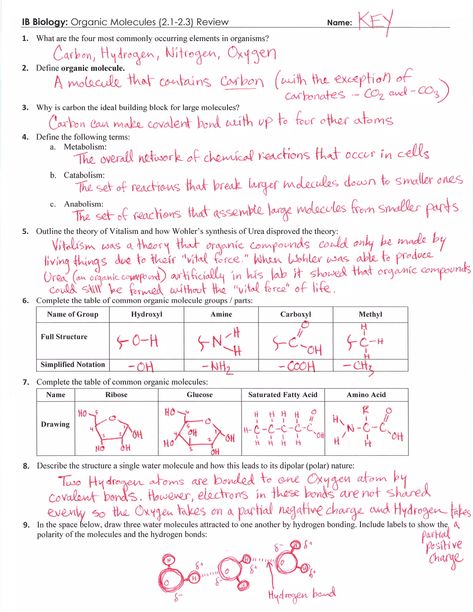 IB Biology: Organic Molecules (2.1-2.3) Review Name: KEY
1. What are the four most commonly occurring elements in organisms?
Carbon, Hydrogen, Nitrogen, Oxygen
2. Define organic molecule.
A molecule that contains carbon (with the exception of
carbonates - CO2 and -CO3)
3. Why is carbon the ideal building block for large molecules?
Carbon can make covalent bond with up to four other atoms
4. Define the following terms:
a. Metabolism:
The overall network of chemical reactions that occur in cells
b. Catabolism:
The set of reactions that break larger molecules down to smaller ones
c. Anabolism:
The set of reactions that assemble large molecules from smaller parts
5. Outline the theory of Vitalism and how Wohler's synthesis of Urea disproved the theory:
Vitalism was a theory that organic compounds could only be made by
living things due to their "vital force." When Wohler was able to produce
Urea (an organic compound) artificially in his lab it showed that organic compounds
could still be formed without the "vital force" of life.
6. Complete the table of common organic molecule groups / parts:
Name of Group Hydroxyl Amine Carboxyl Methyl
Full Structure O-H N H H C O OH H C-H H
Simplified Notation -OH -NH2 -COOH -CH3
7. Complete the table of common organic molecules:
Name Ribose Glucose Saturated Fatty Acid Amino Acid
Drawing
8. Describe the structure a single water molecule and how this leads to its dipolar (polar) nature:
Two Hydrogen atoms are bonded to one Oxygen atom by
covalent bonds. However, electrons in these bonds are not shared
evenly so the Oxygen takes on a partial negative charge and Hydrogen takes
9. In the space below, draw three water molecules attracted to one another by hydrogen bonding. Include labels to show the
polarity of the molecules and the hydrogen bonds:
a
partial
positive
charge
Hydrogen bond